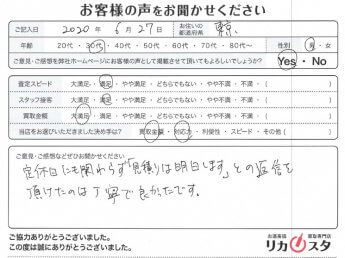 お客様の声をお聞かせください
ご記入日 2020年 6月 27日 お住いの都道府県 東京
年齢 20代・30代・40代・50代・60代・70代・80代～ 性別 男・女
ご意見・ご感想を弊社ホームページにお客様の声として掲載させて頂いてもよろしいでしょうか? Yes・No
査定スピード 大満足・満足・やや満足・どちらでもない・やや不満・不満・( )
スタッフ接客 大満足・満足・やや満足・どちらでもない・やや不満・不満・( )
買取金額 大満足・満足・やや満足・どちらでもない・やや不満・不満・( )
当店をお選びいただきました決め手は? 買取金額・対応力・利便性・スピード・その他( )
ご意見・ご感想などぜひお聞かせください。
定休日にも関わらず「見積りは明日します」との返信を
頂けたのは丁寧で良かったです。
ご協力ありがとうございました。
この度は誠にありがとうございました。
お酒高価買取専門店
リカスタ